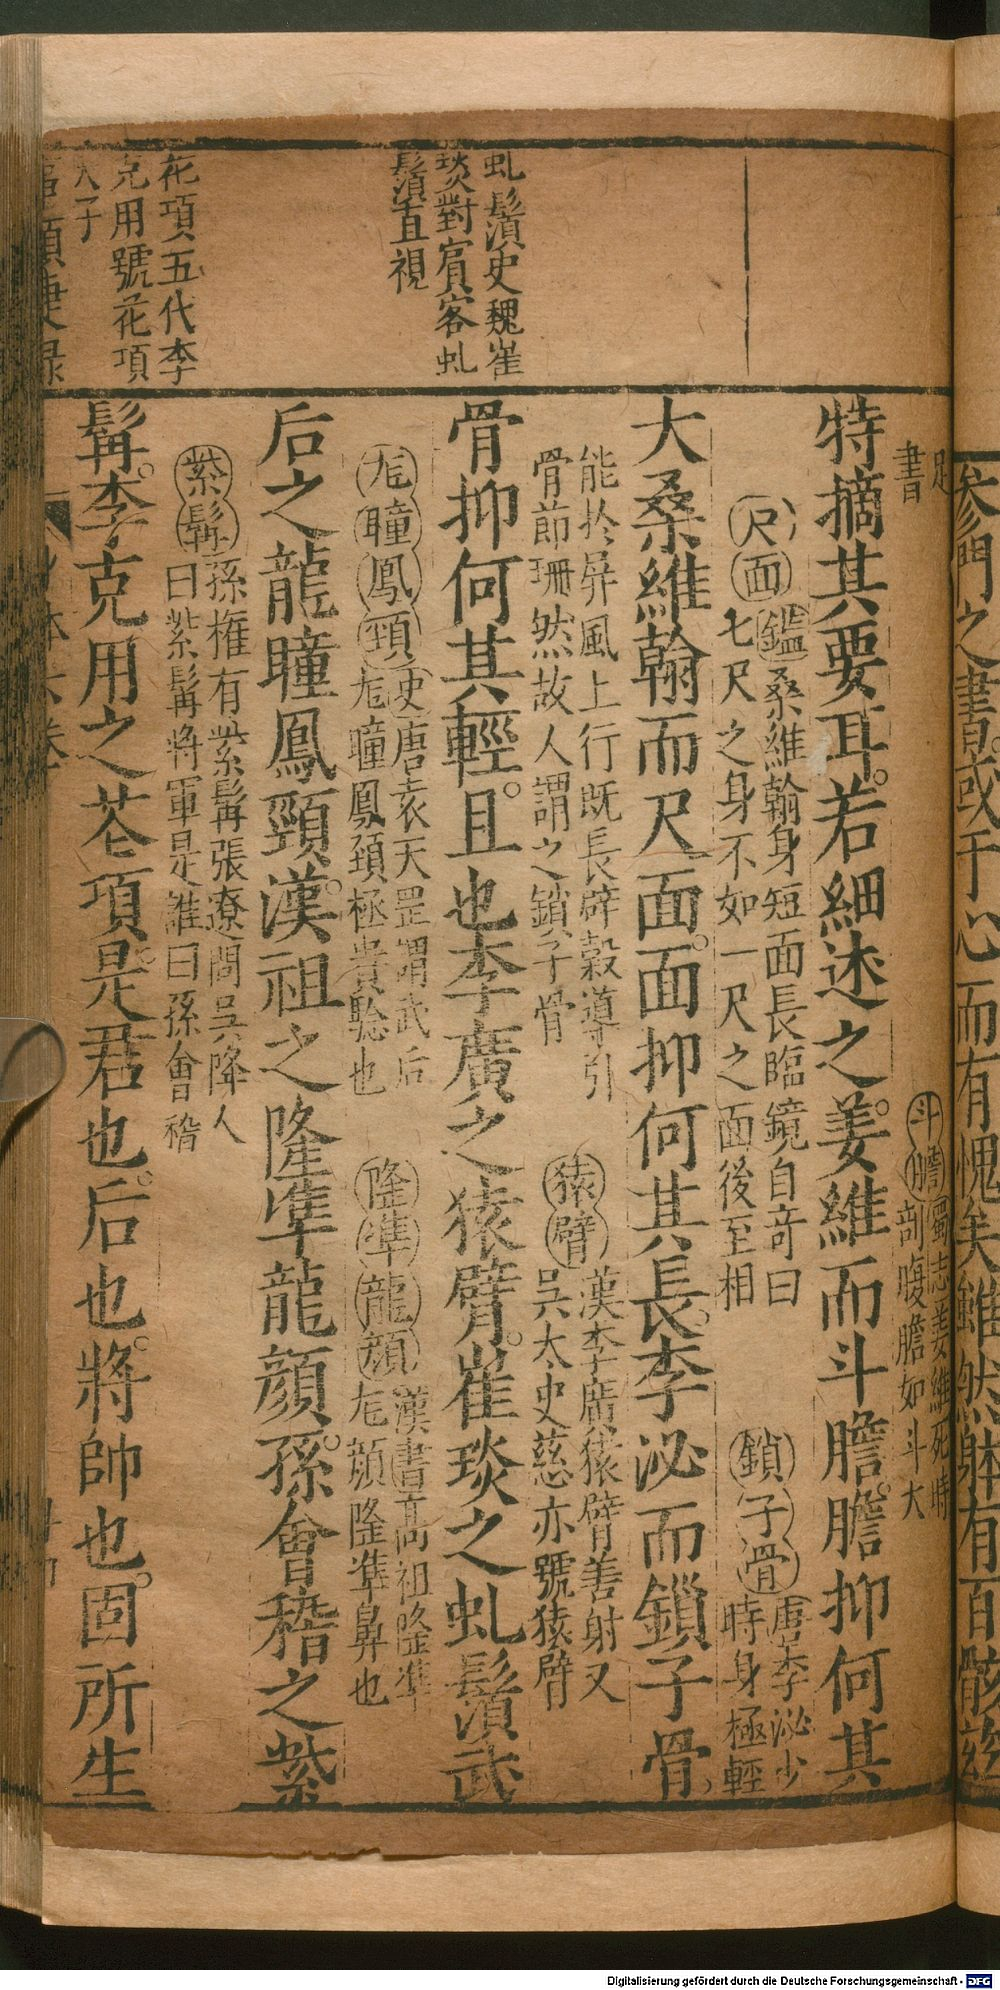 參門之書或于心而有愧矣雖然躰有百骸玆
足
書
斗膽 蜀志姜維死時
剖腹膽如斗大
特摘其要耳。若細述之。姜維而斗膽。膽抑何其
尺面 鑑桑維翰身短面長臨鏡自奇曰
七尺之身不如一尺之面後至相
鎖子骨 唐李泌少
時身極輕
大桑維翰而尺面。面抑何其長。李泌而鎖子骨。
能於屏風上行既長辟穀導引
骨節珊然故人謂之鎖子骨
猿臂 漢李廣猿臂善射又
吳太史慈亦號猿臂
骨抑何其輕。且也李廣之猿臂。崔琰之虬鬚武
虬鬚史魏崔
琰對賓客虬
鬚直視
龙瞳鳳頸 史唐袁天罡謂武后
龙瞳鳳頸極貴驗也
隆準龍顏 漢書高祖隆準
龙顏隆準鼻也
后之龍瞳鳳頸。漢祖之隆準龍顏。孫會稽之紫
紫髯 孫權有紫髯張遼問吳降人
曰紫髯將軍是誰曰孫會稽
髯。李克用之花項。是君也。后也。將帥也。固所生
花項五代李
克用號花項